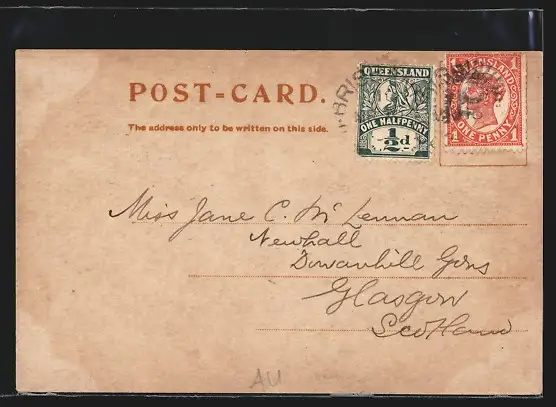 POST-CARD.
The address only to be written on this side.
BRIS
QUEENSLAND
ONE HALFPENNY
1/2 d
1 1
QUEENSLAND
1 ONE PENNY 1
Miss Jane C. McLennan
Newhall
Dowanhill Gdns
Glasgow
Scotland
AU